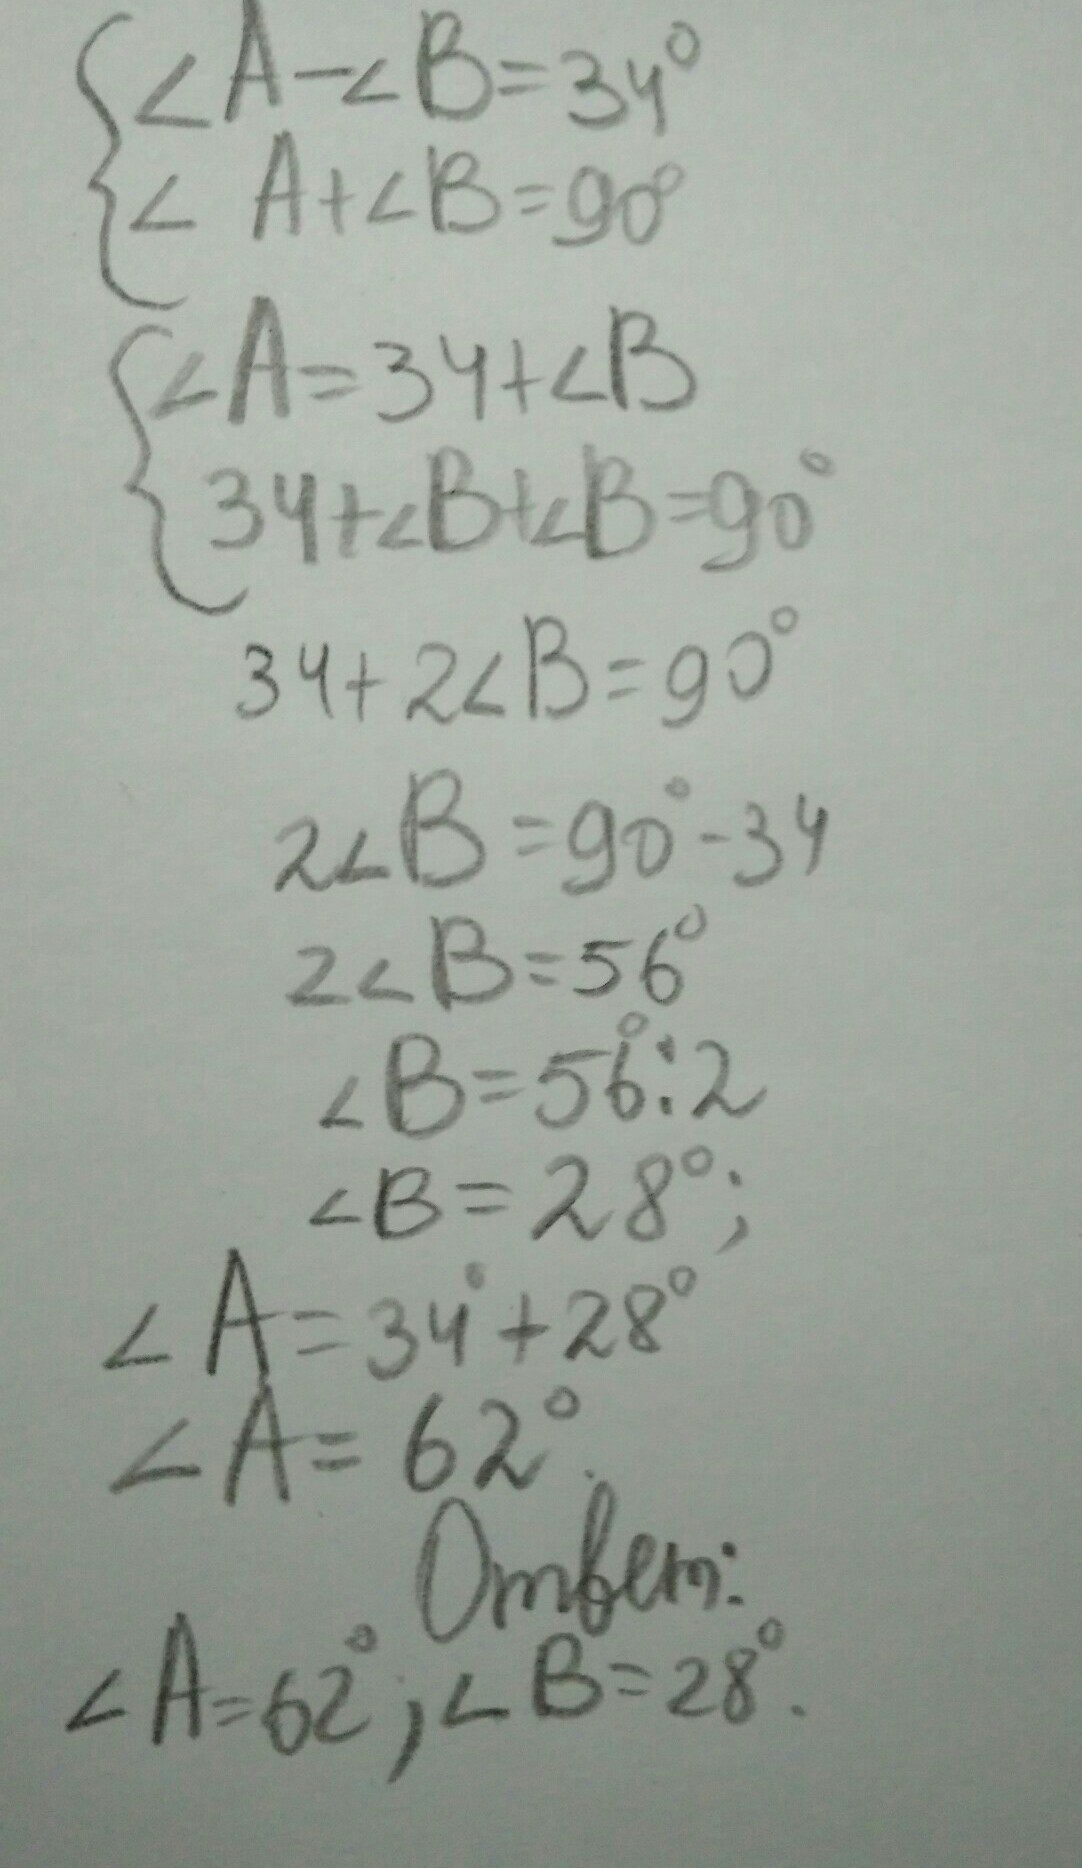 ∠A-∠B=34°
∠A+∠B=90°
∠A=34+∠B
34+∠B+∠B=90°
34+2∠B=90°
2∠B=90°-34
2∠B=56°
∠B=56°:2
∠B=28°;
∠A=34°+28°
∠A=62°.
Ответ:
∠A=62°;∠B=28°.